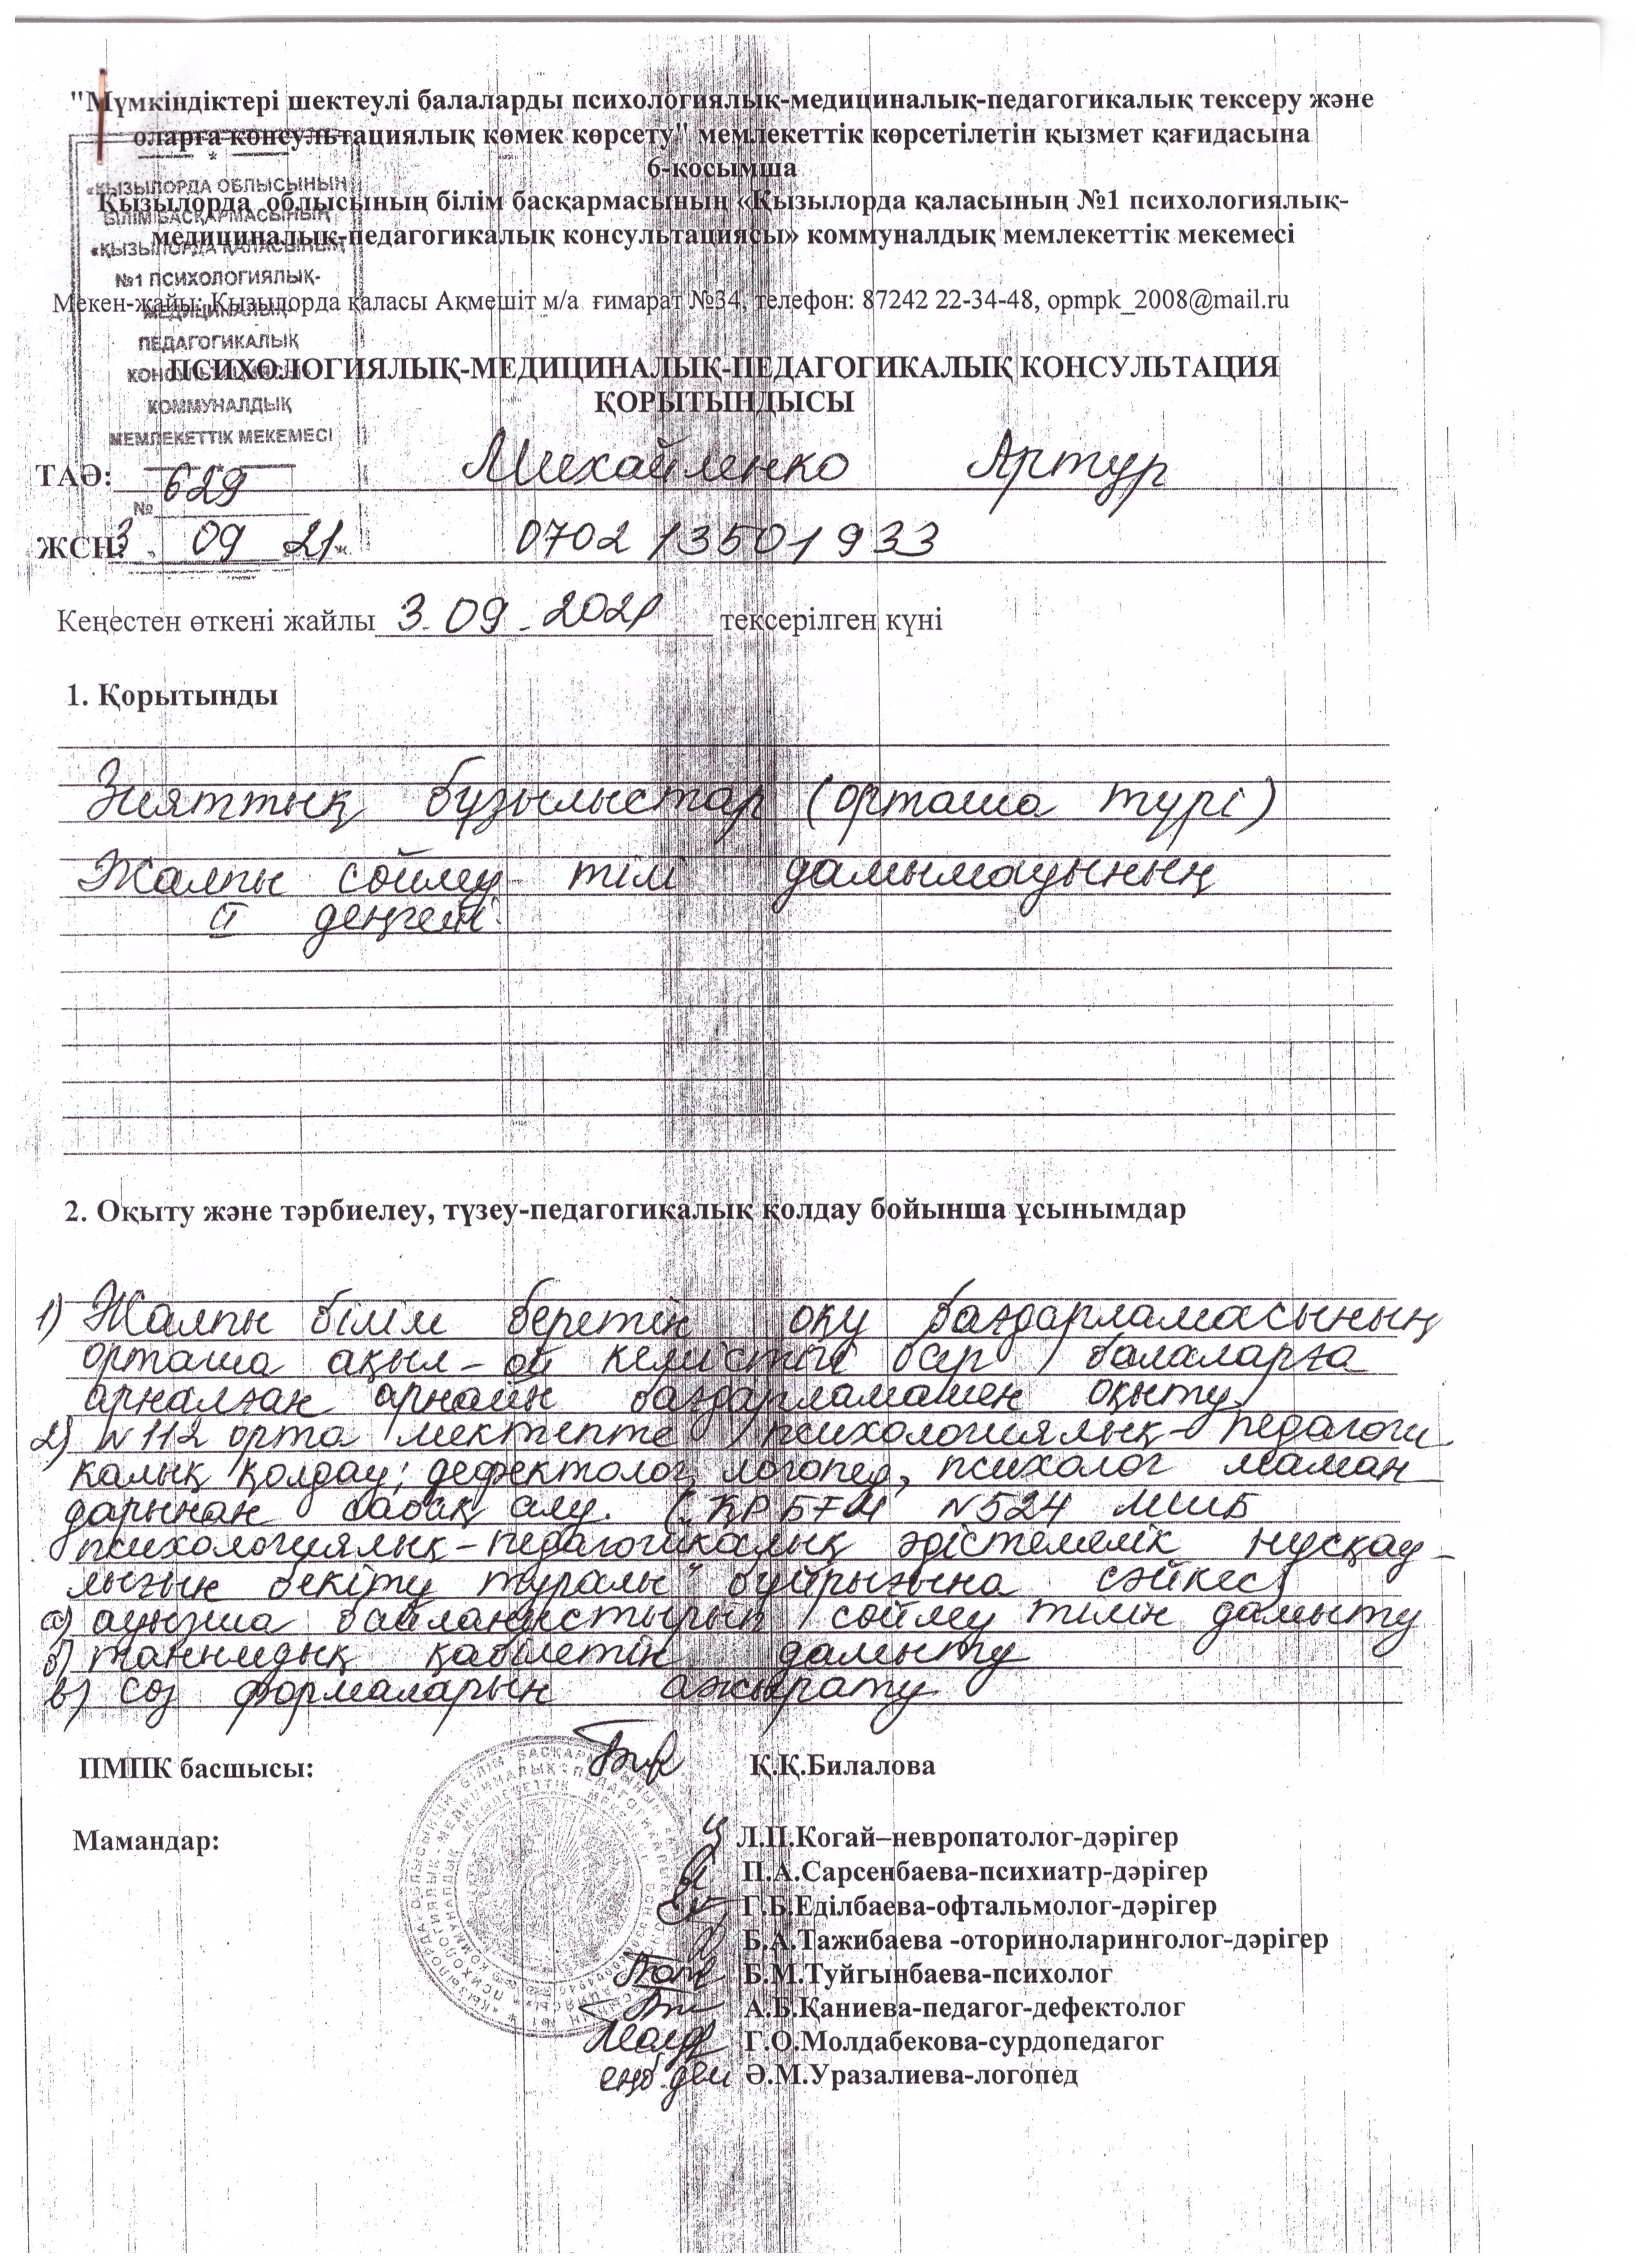 "Мүмкіндіктері шектеулі балаларды психологиялық-медициналық-педагогикалық тексеру және
оларға консультациялық көмек көрсету" мемлекеттік көрсетілетін қызмет қағидасына
6-қосымша
Қызылорда облысының білім басқармасының «Қызылорда қаласының №1 психологиялық-
медициналық-педагогикалық консультациясы» коммуналдық мемлекеттік мекемесі
«ҚЫЗЫЛОРДА ОБЛЫСЫНЫҢ
БІЛІМ БАСҚАРМАСЫНЫҢ
«ҚЫЗЫЛОРДА ҚАЛАСЫНЫҢ
№1 ПСИХОЛОГИЯЛЫҚ-
МЕДИЦИНАЛЫҚ-
ПЕДАГОГИКАЛЫҚ
КОММУНАЛДЫҚ
МЕМЛЕКЕТТІК МЕКЕМЕСІ
№ 629
3 09 21ж.
Мекен-жайы: Қызылорда қаласы Ақмешіт м/а ғимарат №34, телефон: 87242 22-34-48, opmpk_2008@mail.ru
ПСИХОЛОГИЯЛЫҚ-МЕДИЦИНАЛЫҚ-ПЕДАГОГИКАЛЫҚ КОНСУЛЬТАЦИЯ
ҚОРЫТЫНДЫСЫ
ТАӘ: Михайленко Артур
ЖСН: 070213501933
Кеңестен өткені жайлы 3.09.2021 тексерілген күні
1. Қорытынды
Зияттық бұзылыстар (орташа түрі)
Жалпы сөйлеу тілі дамымауының
II деңгейі.
2. Оқыту және тәрбиелеу, түзеу-педагогикалық қолдау бойынша ұсынымдар
1) Жалпы білім беретін оқу бағдарламасының
орташа ақыл-ой кемістігі бар балаларға
арналған арнайы бағдарламамен оқыту.
2) №112 орта мектепте психологиялық-педагоги
калық қолдау; дефектолог, логопед, психолог маман
дарынан сабақ алу. ("ҚР БҒМ №524
психологиялық-педагогикалық әдістемелік нұсқау-
лығын бекіту туралы" бұйрығына сәйкес)
а) ауызша байланыстырып сөйлеу тілін дамыту
б) танымдық қабілетін дамыту
в) сөз формаларын ажырату
ПМПК басшысы: Қ.Қ.Билалова
Мамандар: Л.П.Когай–невропатолог-дәрігер
П.А.Сарсенбаева-психиатр-дәрігер
Г.Б.Еділбаева-офтальмолог-дәрігер
Б.А.Тажибаева -оториноларинголог-дәрігер
Б.М.Туйгынбаева-психолог
А.Б.Қаниева-педагог-дефектолог
Г.О.Молдабекова-сурдопедагог
еңб.дем Ә.М.Уразалиева-логопед